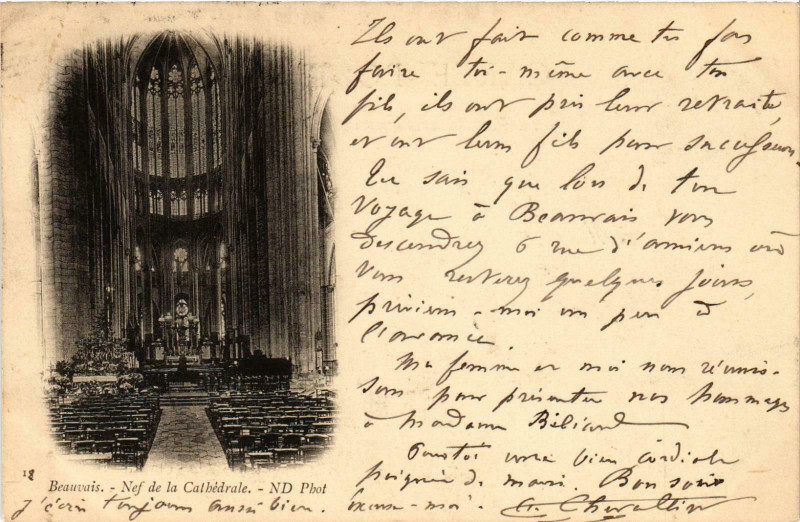 Ils ont fait comme tu fas
faire toi-même avec ton
fils, ils ont pris leur retraite
et ont leur fils pour successeur.
Tu sais que lors de ton
voyage à Beauvais vous
descendrez 6 rue d'amiens où
vous resterez quelques jours,
préviens-moi un peu à
l'avance.
Ma femme et moi nous réunis-
sons pour présenter nos hommages
à Madame Béliard
Pour toi une bien cordiale
poignée de main. Bon soir
excuse-moi.
12
Beauvais. - Nef de la Cathédrale. - ND Phot
j'écris toujours aussi bien.